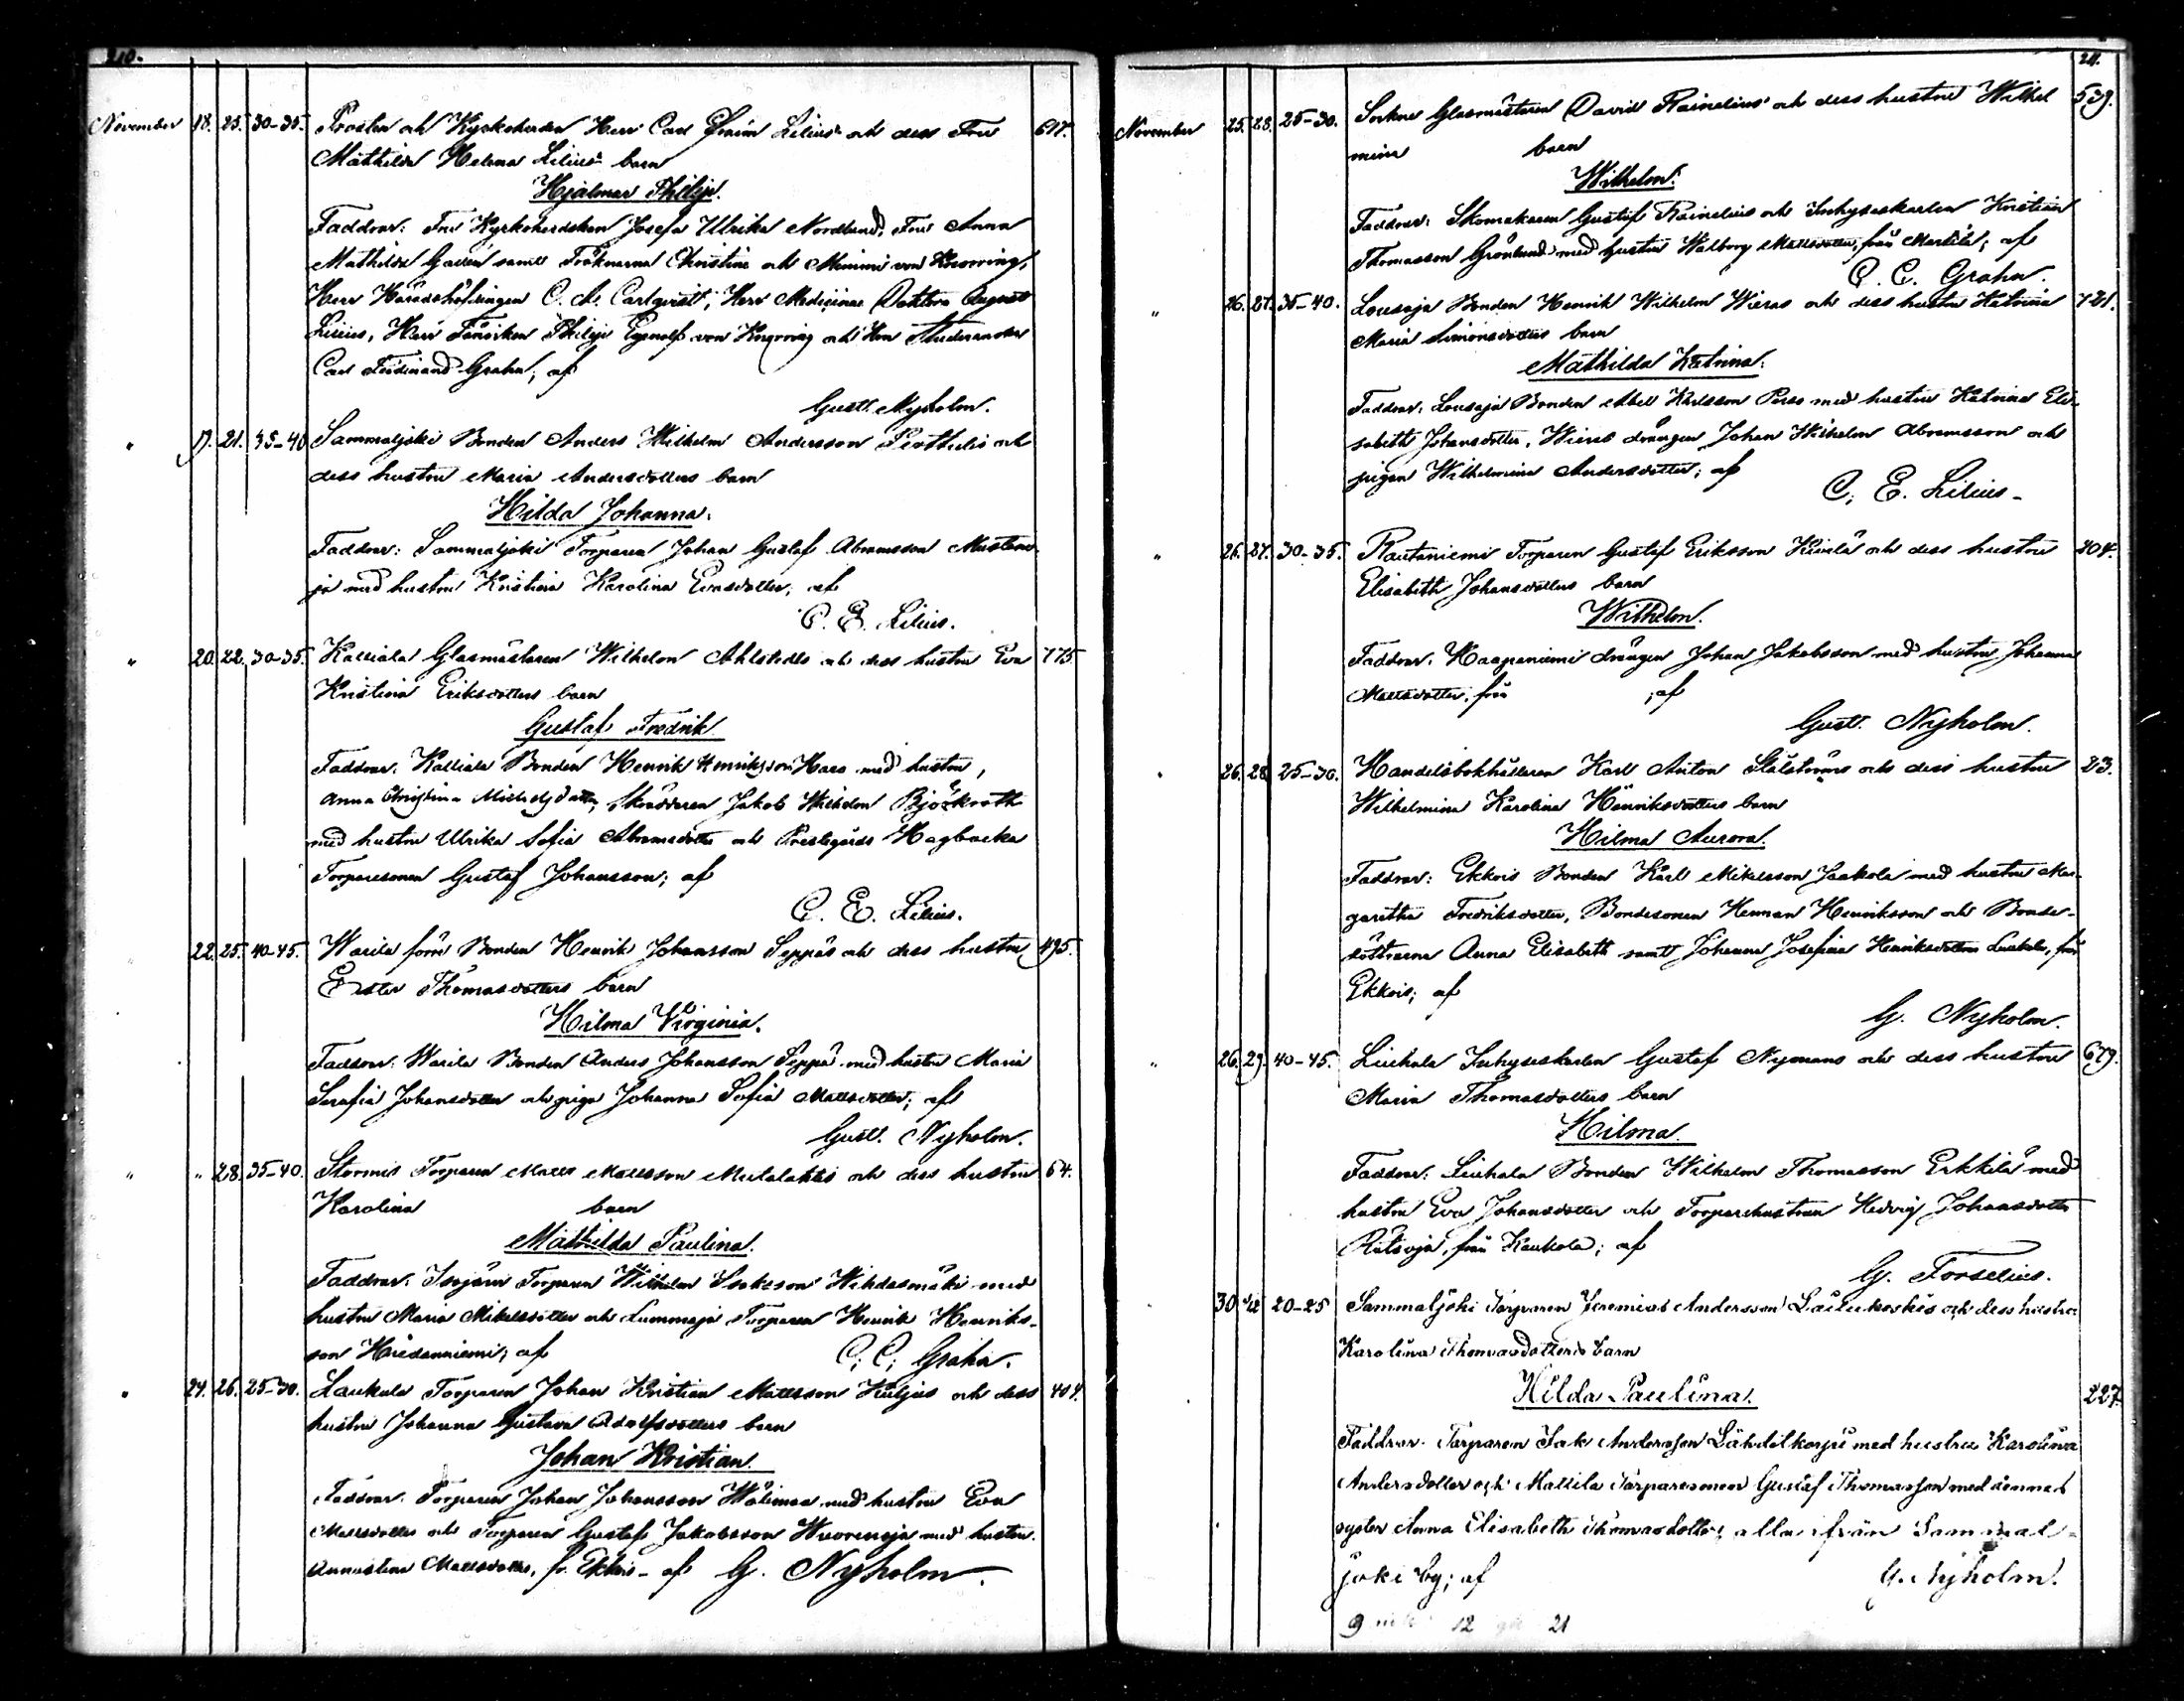 210.
November 18. 25. 30-35. Prosten och Kyrkoherden Herr Carl Efraim Lilius och dess Fru 617.
Mathilda Helena Lilius barn
Hjalmar Philip.
Faddrar: Fru Kyrkoherdskan Josefa Ulrika Nordlund, Fru Anna
Mathilda samt Fröknarna Christine och Mimmi von Knorring,
Herr Häradshöfdingen C. A. Carlqvist, Herr Medicinae Doktorn August
Lilius, Herr Philip von Knorring och Herr Studeranden
Carl Ferdinand Grahn, af
Gust. Nyholm.
" 19. 21. 35-40 Sammaljoki Bonden Anders Wilhelm Andersson och
dess hustru Maria Andersdotters barn
Hilda Johanna.
Faddrar: Sammaljoki Torparen Johan Gustaf Abramsson
ja med hustru Kristina Karolina Evasdotter; af
C. E. Lilius.
" 20. 22. 30-35. Kalliala Glasmästaren Wilhelm Ahlstedts och dess hustru Eva 775
Kristina Eriksdotters barn
Gustaf Fredrik
Faddrar: Kalliala Bonden Henrik Henriksson Hara med hustru,
Anna Christina Michelsdotter, Skräddaren Jakob Wilhelm
med hustru Ulrika Sofia Abramsdotter och Prestegårds Hagbacka
Torparesonen Gustaf Johansson; af
C. E. Lilius.
" 22. 25. 40-45. Warila förre Bonden Henrik Johansson Seppäs och dess hustru 495.
Ester Thomasdotters barn
Hilma Virginia.
Faddrar: Warila Bonden Anders Johansson Seppä med hustru Maria
Serafia Johansdotter och pigan Johanna Sofia Mattsdotter; af
Gust. Nyholm.
" " 28. 35-40. Stormis Torparen Matts Mattsson och dess hustru 64.
Karolina barn
Mathilda Paulina.
Faddrar: Torparen Wilhelm Isaksson Wihdasmäki med
hustru Maria Mikelsdotter och Lummaja Torparen Henrik Henriks-
son Hiedanniemi; af C. C. Grahn.
" 24. 26. 25-30. Laukula Torparen Johan Kristian Mattsson och dess 404.
hustru Johanna Gustava Adolfsdotters barn
Johan Kristian.
Faddrar: Torparen Johan Johansson med hustru Eva
Mattsdotter och Torparen Gustaf Jakobsson Wuorenoja med hustru
Annastina Mattsdotter, fr. Ekkois - af G. Nyholm.
211.
November 25. 28. 25-30. Glasmästaren David Rainelius och dess hustru Wilhel 539.
mina barn
Wilhelm.
Faddrar: Skomakaren Gustaf Rainelius och Inhyseskarlen Kristian
Thomasson Grönlund med hustru Walborg Mattsdotter, från Marttila; af
C. C. Grahn.
" 26. 27. 35-40. Lousaja Bonden Henrik Wilhelm Wieras och dess hustru Katrina 721.
Maria Simonsdotters barn
Mathilda Katrina.
Faddrar: Lousaja Bonden Abel Karlsson Perso med hustru Katrina Eli-
sabeth Johansdotter, drängen Johan Wilhelm Abramsson och
pigan Wilhelmina Andersdotter; af
C. E. Lilius
" 26. 27. 30-35. Rautaniemi Torparen Gustaf Eriksson och dess hustru 204.
Elisabeth Johansdotters barn
Wilhelm.
Faddrar: Haapaniemi drängen Johan Jakobsson med hustru Johanna
Mattsdotter, från ; af
Gust. Nyholm.
" 26. 28. 25-30. Handelsbokhållaren Karl Anton Stålströms och dess hustru 23.
Wilhelmina Karolina Henriksdotters barn
Hilma Aurora.
Faddrar: Ekkois Bonden Karl Mikelsson Jaakola med hustru Mar-
garetha Fredriksdotter, Bondesonen Herman Henriksson och Bonde-
döttrarna Anna Elisabeth samt Johanna Josefina Henriksdotter, från
Ekkois; af
G. Nyholm.
" 26. 29. 40-45. Liuhala Inhyseskarlen Gustaf Nymans och dess hustru 679.
Maria Thomasdotters barn
Hilma.
Faddrar: Liuhala Bonden Wilhelm Thomasson Erkkilä med
hustru Eva Johansdotter och Torparehustrun Hedvig Johansdotter
från Kaukola; af
G. Forselius.
30 20-25 Sammaljoki Torparen Jeremias Andersson och dess hustru
Karolina Thomasdotters barn
Hilda Paulina. 227
Faddrar: Torparen Isak Andersson Lähdekorpi med hustru Karolina
Andersdotter och Mattila Torparesonen Gustaf Thomasson med dennes
syster Anna Elisabeth Thomasdotter; alla ifrån Sammal-
joki by; af G. Nyholm.
9 12 21